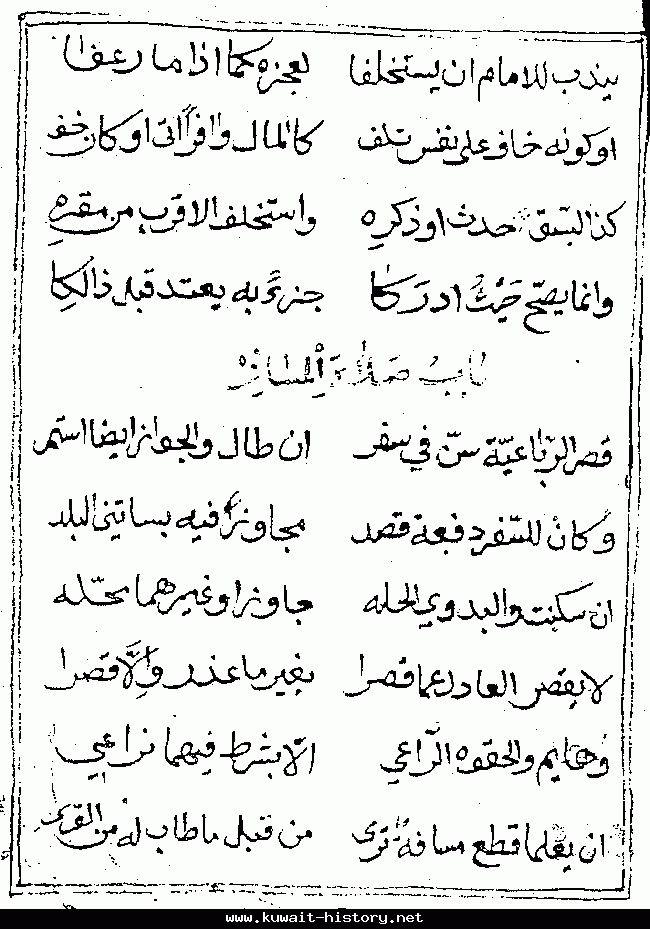 يندب للامام ان يستخلفا لعجزه كما اذا ما رعفا
او كونه خاف على نفس تلف كالمال وافراً اتى او كان خف
كذا السبق حدث او ذكره واستخلف الاقرب من مقره
وانما يصح حيث ادركا جزءً به يعتد قبل ذالكا
باب صلاة المسافر
قصر الرباعيّة سنّ في سفر ان طال والجواز ايضا استمر
وكان للسفر دفعة قصد مجاوزاً فيه بساتين البلد
ان سكنت والبدوي الحله جاوزا وغيرهما محلّه
لا يقصر العادل عما قصرا بغير ما عذر وإلّا قصرا
وهايم والحقوه الرّاعي الّا بشرط فيهما نراعي
ان يعلما قطع مسافة ترى من قبل ما طاب له من القرى
www.kuwait-history.net